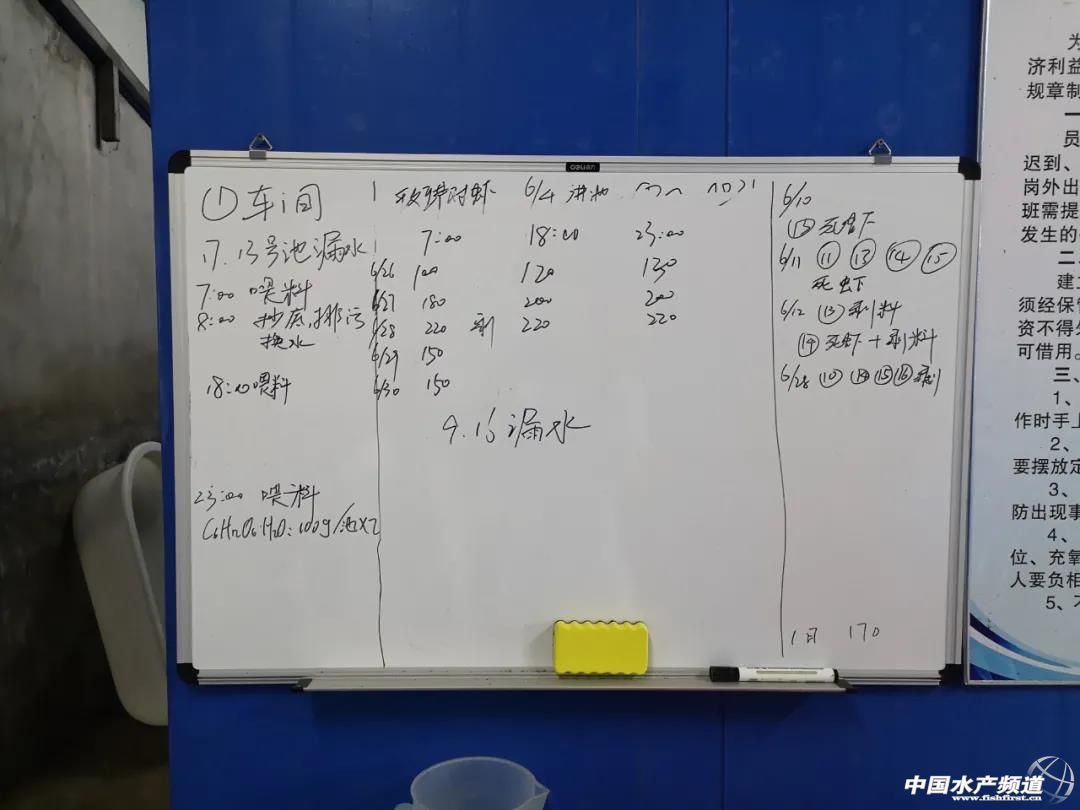 deli
①车间
17.13号池漏水
7:00 喂料
8:00 抄底,排污
换水
18:00喂料
23:00 喂料
C6H12O6·H2O:100g/池×2
对虾 6/4 进池
7:00 18:00 23:00
6/26 100 120 130
6/27 180 200 200
6/28 220 剩 220 220
6/29 150
6/30 150
9.16漏水
6/10
⑬死虾
6/11 ⑪ ⑬ ⑭ ⑮
死虾
6/12 ⑬剩料
⑭死虾+剩料
6/28 ⑩ ⑭⑮⑯剩
1日 170
为
济利益
规章制
一
员
迟到、
岗外出
班需提
发生的
二
建立
须经保管
资不得
可借用。
三、
1、
作时手上
2、
要摆放定
3、
防出现事
4、
位、充氧
人要负相
5、
中国水产频道
www.fishfirst.cn